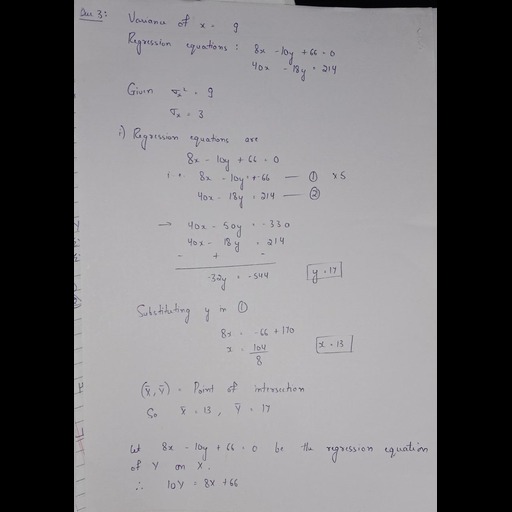 Que 3: Variance of x = 9
Regression equations: 8x - 10y + 66 = 0
40x - 18y = 214
Given σx² = 9
σx = 3
i) Regression equations are
8x - 10y + 66 = 0
i.e. 8x - 10y = -66 — ① x5
40x - 18y = 214 — ②
→ 40x - 50y = -330
40x - 18y = 214
- + -
-32y = -544 y = 17
Substituting y in ①
8x = -66 + 170
x = 104/8 x = 13
(X̄, Ȳ) = Point of intersection
So X̄ = 13, Ȳ = 17
Let 8x - 10y + 66 = 0 be the regression equation
of Y on X.
∴ 10Y = 8X + 66